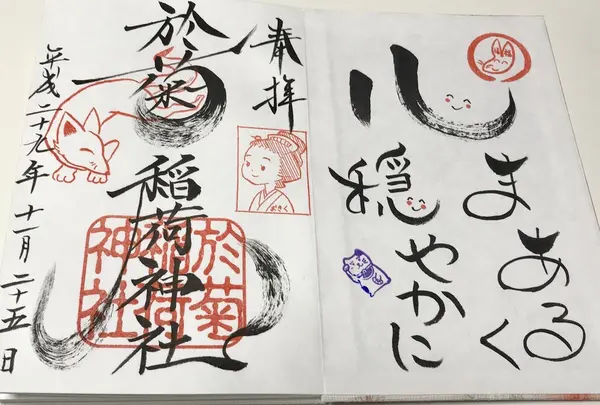 心
まあるく
穏やかに
奉拝
おきく
於菊稲荷神社
於菊
稲荷
神社
平成二十九年十一月二十五日